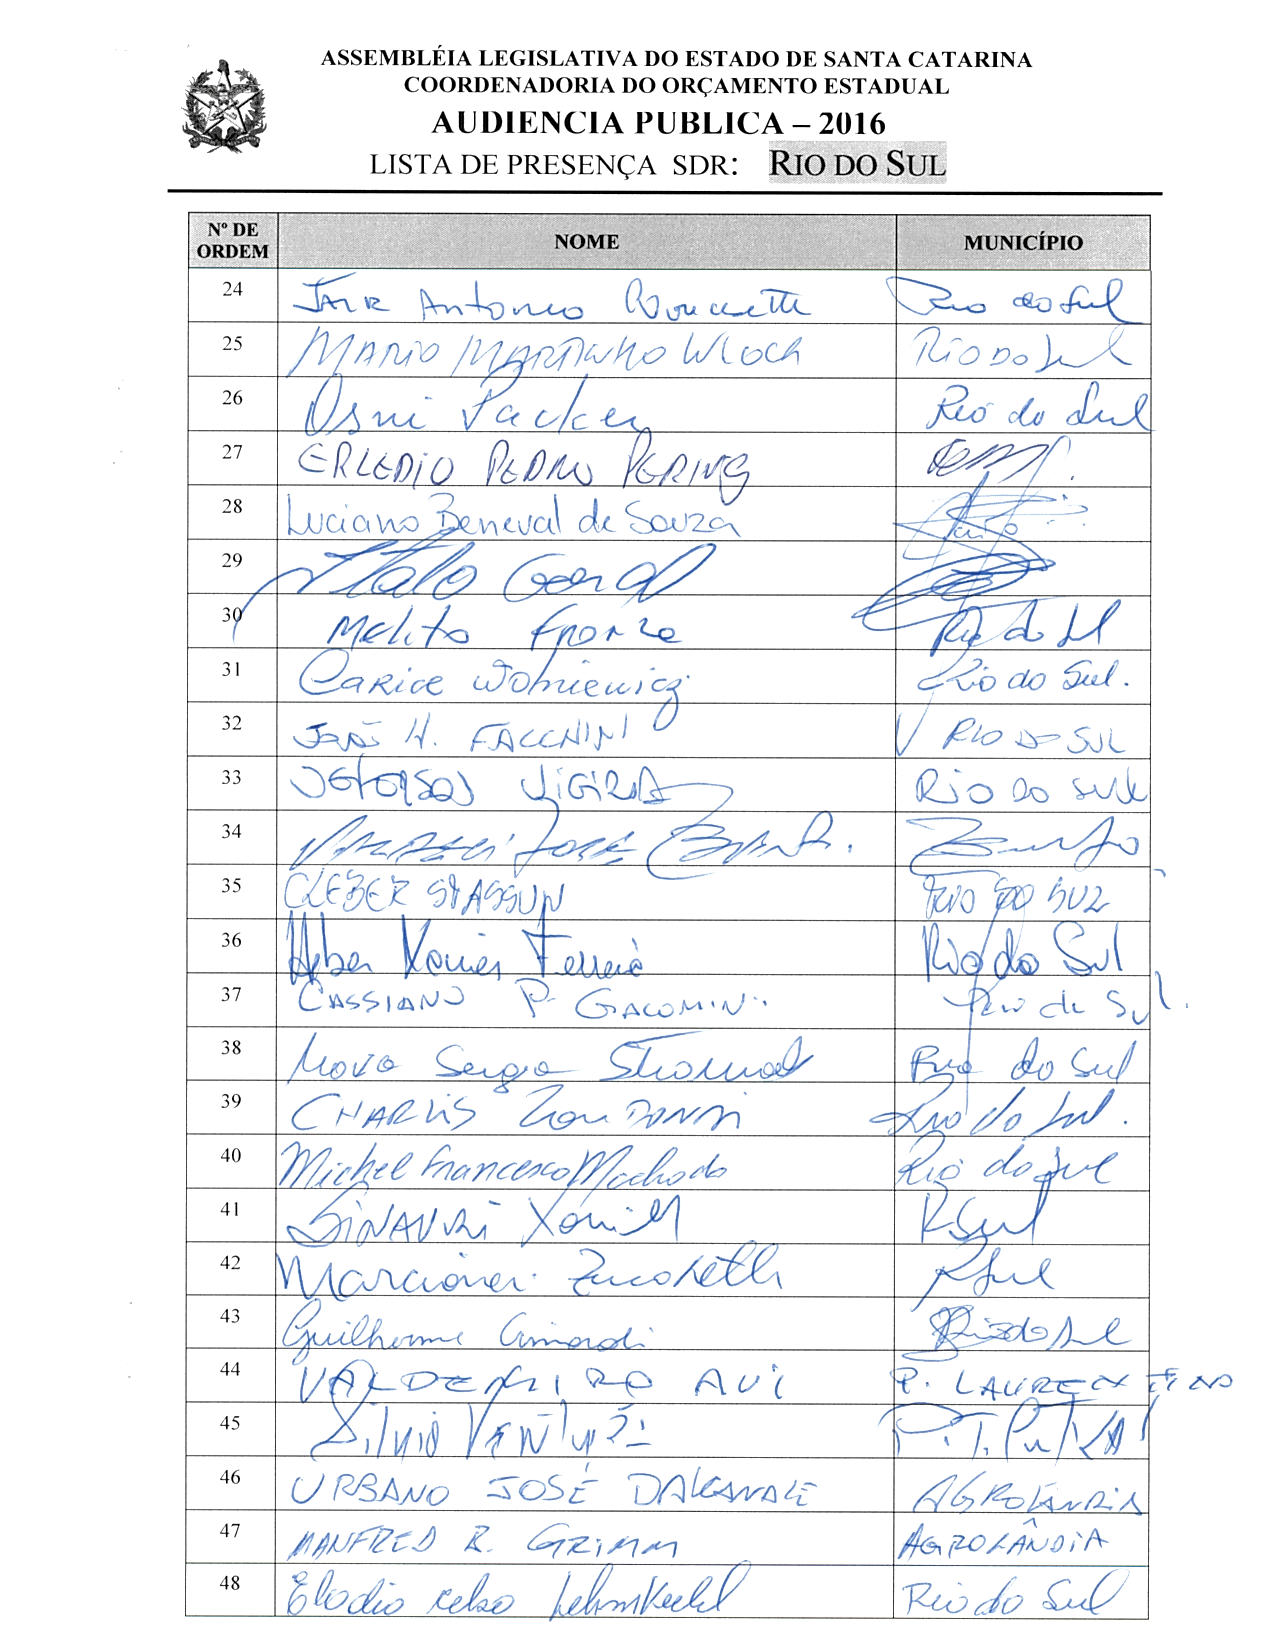 ASSEMBLÉIA LEGISLATIVA DO ESTADO DE SANTA CATARINA
COORDENADORIA DO ORÇAMENTO ESTADUAL
AUDIENCIA PUBLICA – 2016
LISTA DE PRESENÇA SDR: RIO DO SUL
Nº DE ORDEM NOME MUNICÍPIO
24 JAIR Antonio Rio do Sul
25 MARIO MARTINHO WLOCH RIO DO Sul
26 Osni Packer Rio do Sul
27 ERCEDIO PEDRO PERING
28 Luciano Beneval de Souza
29 Italo Goral
30 Melito Fronza Rio do Sul
31 Carice Wolniewicz Rio do Sul.
32 JOÃO H. FACCHINI RIO DO SUL
33 VIEIRA RIO DO SUL
34 JOSÉ
35 CLEBER STASSUN RIO DO SUL
36 Heber Xavier Ferreira Rio do Sul
37 CASSIANO P. GIACOMINI Rio do Sul.
38 Sergio Rio do Sul
39 CHARLIS Rio do Sul.
40 Michel Francesco Machado Rio do Sul
41 R Sul
42 R Sul
43 Guilherme Rio do Sul
44 VALDEMIRO AVI P. LAURENTINO
45 Silvio VENTURI
46 URBANO JOSÉ DALCANALE AGROLÂNDIA
47 MANFRED R. GRIMM AGROLÂNDIA
48 Elodio Celso Rio do Sul